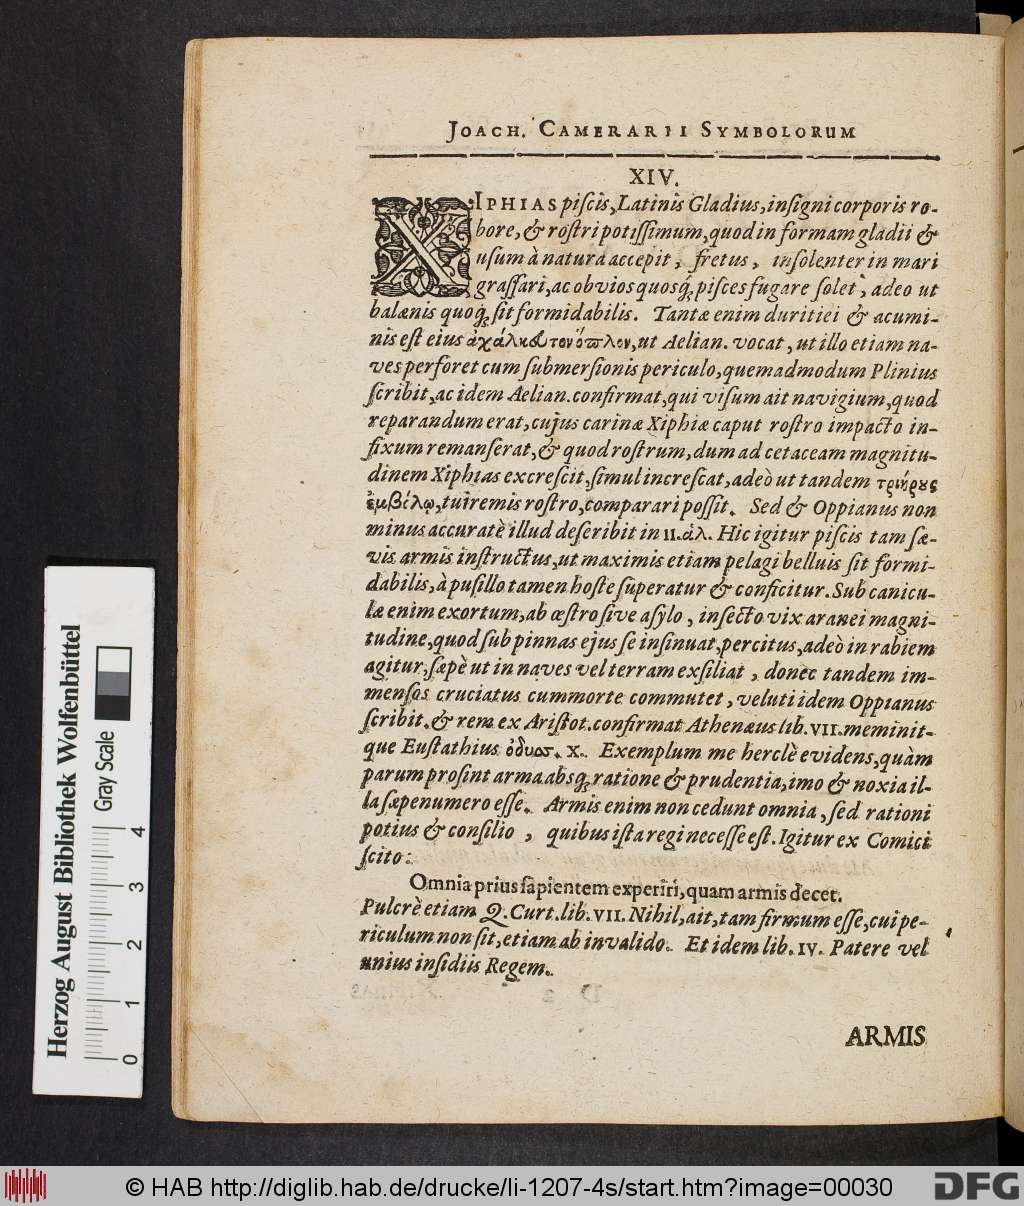 JOACH. CAMERARII SYMBOLORUM
XIV.
XIPHIAS piſcis, Latinis Gladius, inſigni corporis ro-
bore, & roſtri potiſſimum, quod in formam gladii &
uſum à natura accepit, fretus, inſolenter in mari
graſſari, ac obvios quosq́; piſces fugare ſolet, adeo ut
balænis quoq́; ſit formidabilis. Tantæ enim duritiei & acumi-
nis eſt eius ἀχάλκευτον ὅπλον, ut Aelian. vocat, ut illo etiam na-
ves perforet cum ſubmerſionis periculo, quemadmodum Plinius
ſcribit, ac idem Aelian. confirmat, qui viſum ait navigium, quod
reparandum erat, cujus carinæ Xiphiæ caput roſtro impacto in-
fixum remanſerat, & quod roſtrum, dum ad cetaceam magnitu-
dinem Xiphias excreſcit, ſimul increſcat, adeò ut tandem τριήρους
ἐμβόλῳ, tuiremis roſtro, comparari poſſit. Sed & Oppianus non
minus accuratè illud deſcribit in II. ἁλ. Hic igitur piſcis tam ſæ-
vis armis inſtructus, ut maximis etiam pelagi belluis ſit formi-
dabilis, à puſillo tamen hoſte ſuperatur & conficitur. Sub canicu-
læ enim exortum, ab œſtro ſive aſylo, inſecto vix aranei magni-
tudine, quod ſub pinnas ejus ſe inſinuat, percitus, adeò in rabiem
agitur, ſæpè ut in naves vel terram exſiliat, donec tandem im-
menſos cruciatus cum morte commutet, veluti idem Oppianus
ſcribit. & rem ex Ariſtot. confirmat Athenæus lib. VII. meminit-
que Euſtathius ὀδυσ. χ. Exemplum me herclè evidens, quàm
parum proſint arma absq́; ratione & prudentia, imo & noxia il-
la ſæpenumero eſſe. Armis enim non cedunt omnia, ſed rationi
potius & conſilio, quibus iſta regi neceſſe eſt. Igitur ex Comici
ſcito:
Omnia prius ſapientem experiri, quam armis decet.
Pulcrè etiam Q. Curt. lib. VII. Nihil, ait, tam firmum eſſe, cui pe-
riculum non ſit, etiam ab invalido. Et idem lib. IV. Patere vel
unius inſidiis Regem.
ARMIS
Herzog August Bibliothek Wolfenbüttel
Gray Scale
0 1 2 3 4
© HAB http://diglib.hab.de/drucke/li-1207-4s/start.htm?image=00030
DFG